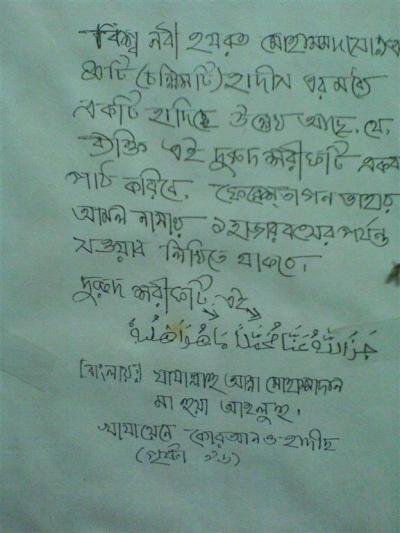 বিশ্ব নবী হযরত মোহাম্মদ
৪০টি (চল্লিশটি) হাদীস এর মধ্যে
একটি হাদিছে উল্লেখ আছে, যে,
ব্যক্তি এই দুরুদ শরীফটি একবা
পাঠ করিবে, ফেরেশতাগন তাহার
আমল নামায় ১ হাজার বৎসর পর্যন্ত
সওয়াব লিখিতে থাকবে।
দুরুদ শরীফটি এই
جَزَى اللهُ عَنَّا مُحَمَّدًا مَا هُوَ اَهْلُهُ
(বাংলায়) যাযাল্লাহু আন্না মোহাম্মাদান
মা হুয়া আহলুহু।
কোরআন ও হাদীছ
(পৃষ্টা ২৬)